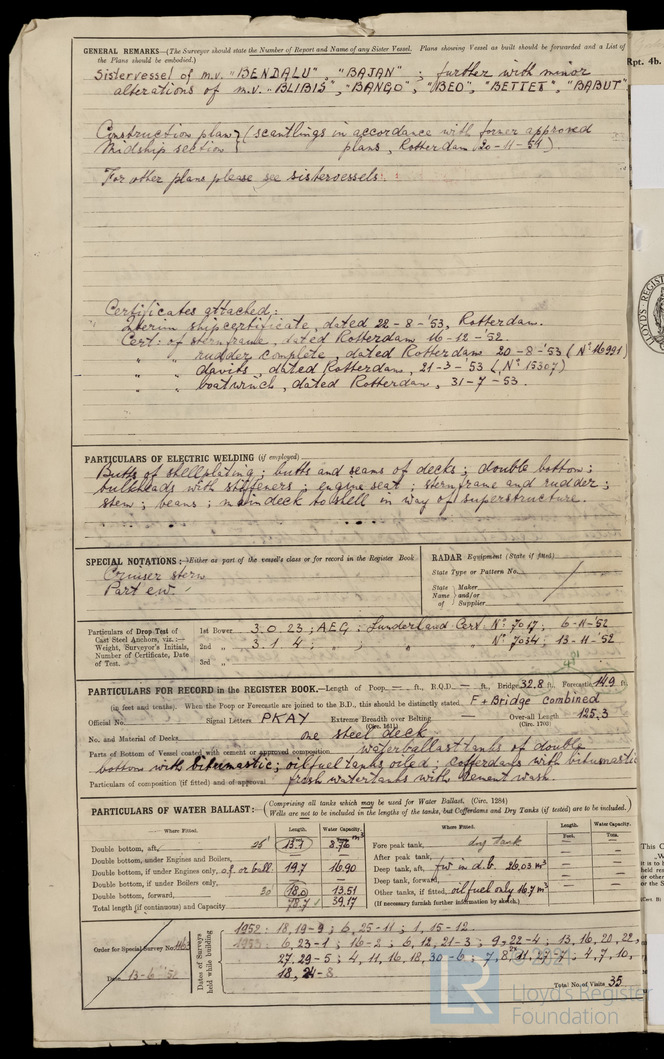 GENERAL REMARKS—(The Surveyor should state the Number of Report and Name of any Sister Vessel. Plans showing Vessel as built should be forwarded and a List of
the Plans should be embodied.)
Sistervessel of m.v. "BENDALU", "BAJAN"; further with minor
alterations of m.v. "BLIBIS", "BANGO", "BEO", "BETTET", "BABUT"
Construction plan } (scantlings in accordance with former approved
Midship section { plans, Rotterdam 20-11-54)
For other plans please see sistervessels.
Certificates attached:
Interim shipcertificate, dated 22-8-'53, Rotterdam.
Cert: of sternframe, dated Rotterdam 16-12-'52.
" " rudder complete, dated Rotterdam 20-8-'53 (No 16991)
" " davits, dated Rotterdam, 21-3-'53 (No 15307)
" " boatwinch, dated Rotterdam, 31-7-53.
PARTICULARS OF ELECTRIC WELDING (if employed)
Butts of shellplating; butts and seams of decks; double bottom;
bulkheads with stiffeners; engine seat; sternframe and rudder;
stem; beams; maindeck to shell in way of superstructure.
SPECIAL NOTATIONS:—Either as part of the vessel's class or for record in the Register Book
Cruiser stern
Part ew.
RADAR Equipment (State if fitted)
State Type or Pattern No.
State Name of { Maker and/or Supplier
Particulars of Drop Test of Cast Steel Anchors, viz.:— Weight, Surveyor's Initials, Number of Certificate, Date of Test.
1st Bower 3.0.23; AEG; Sunderland Cert No 7017; 6-11-52
2nd " 3.1.4; " ; " " No 7034; 13-11-'52
3rd "
PARTICULARS FOR RECORD in the REGISTER BOOK.—Length of Poop — ft., R.Q.D. — ft., Bridge 32.8 ft., Forecastle 14.9 ft.
(in feet and tenths). When the Poop or Forecastle are joined to the B.D., this should be distinctly stated F+Bridge combined
Official No. Signal Letters PKAY Extreme Breadth over Belting (Circ. 1611) — Over-all Length (Circ. 1703) 125.3
No. and Material of Decks one steel deck
Parts of Bottom of Vessel coated with cement or approved composition waterballasttanks of double
bottom with bitumastic; oilfueltanks oiled; cofferdams with bitumastic
Particulars of composition (if fitted) and of approval freshwatertanks with cement wash.
PARTICULARS OF WATER BALLAST:—(Comprising all tanks which may be used for Water Ballast. (Circ. 1284)
Wells are not to be included in the lengths of the tanks, but Cofferdams and Dry Tanks (if tested) are to be included.)
Where Fitted. Length. Water Capacity. m³
Double bottom, aft, 25' 13.7 8.76
Double bottom, under Engines and Boilers,
Double bottom, if under Engines only, 19.7 16.90
Double bottom, if under Boilers only,
Double bottom, forward, 30 18.0 13.51
Total length (if continuous) and Capacity 78.7 39.17
Where Fitted. Length. Feet. Water Capacity. Tons.
Fore peak tank, dry tank — —
After peak tank, — —
Deep tank, aft, fw in d.b. 26.03 m³ — —
Deep tank, forward, — —
Other tanks, if fitted, oilfuel only 16.7 m³ — —
(If necessary furnish further information by sketch.)
Order for Special Survey No. 1163
Date 13-6-'52
Dates of Surveys held while building
1952: 18, 19-9; 6, 25-11; 1, 15-12.
1953: 6, 23-1; 16-2; 6, 12, 21-3; 9, 22-4; 13, 16, 20, 22,
27, 29-5; 4, 11, 16, 18, 30-6; 7, 8, 11, 27, 7; 4, 7, 10,
18, 21-8.
Total No. of Visits 35
Rpt. 4b.
LR
© 2021
Lloyd's Register
Foundation